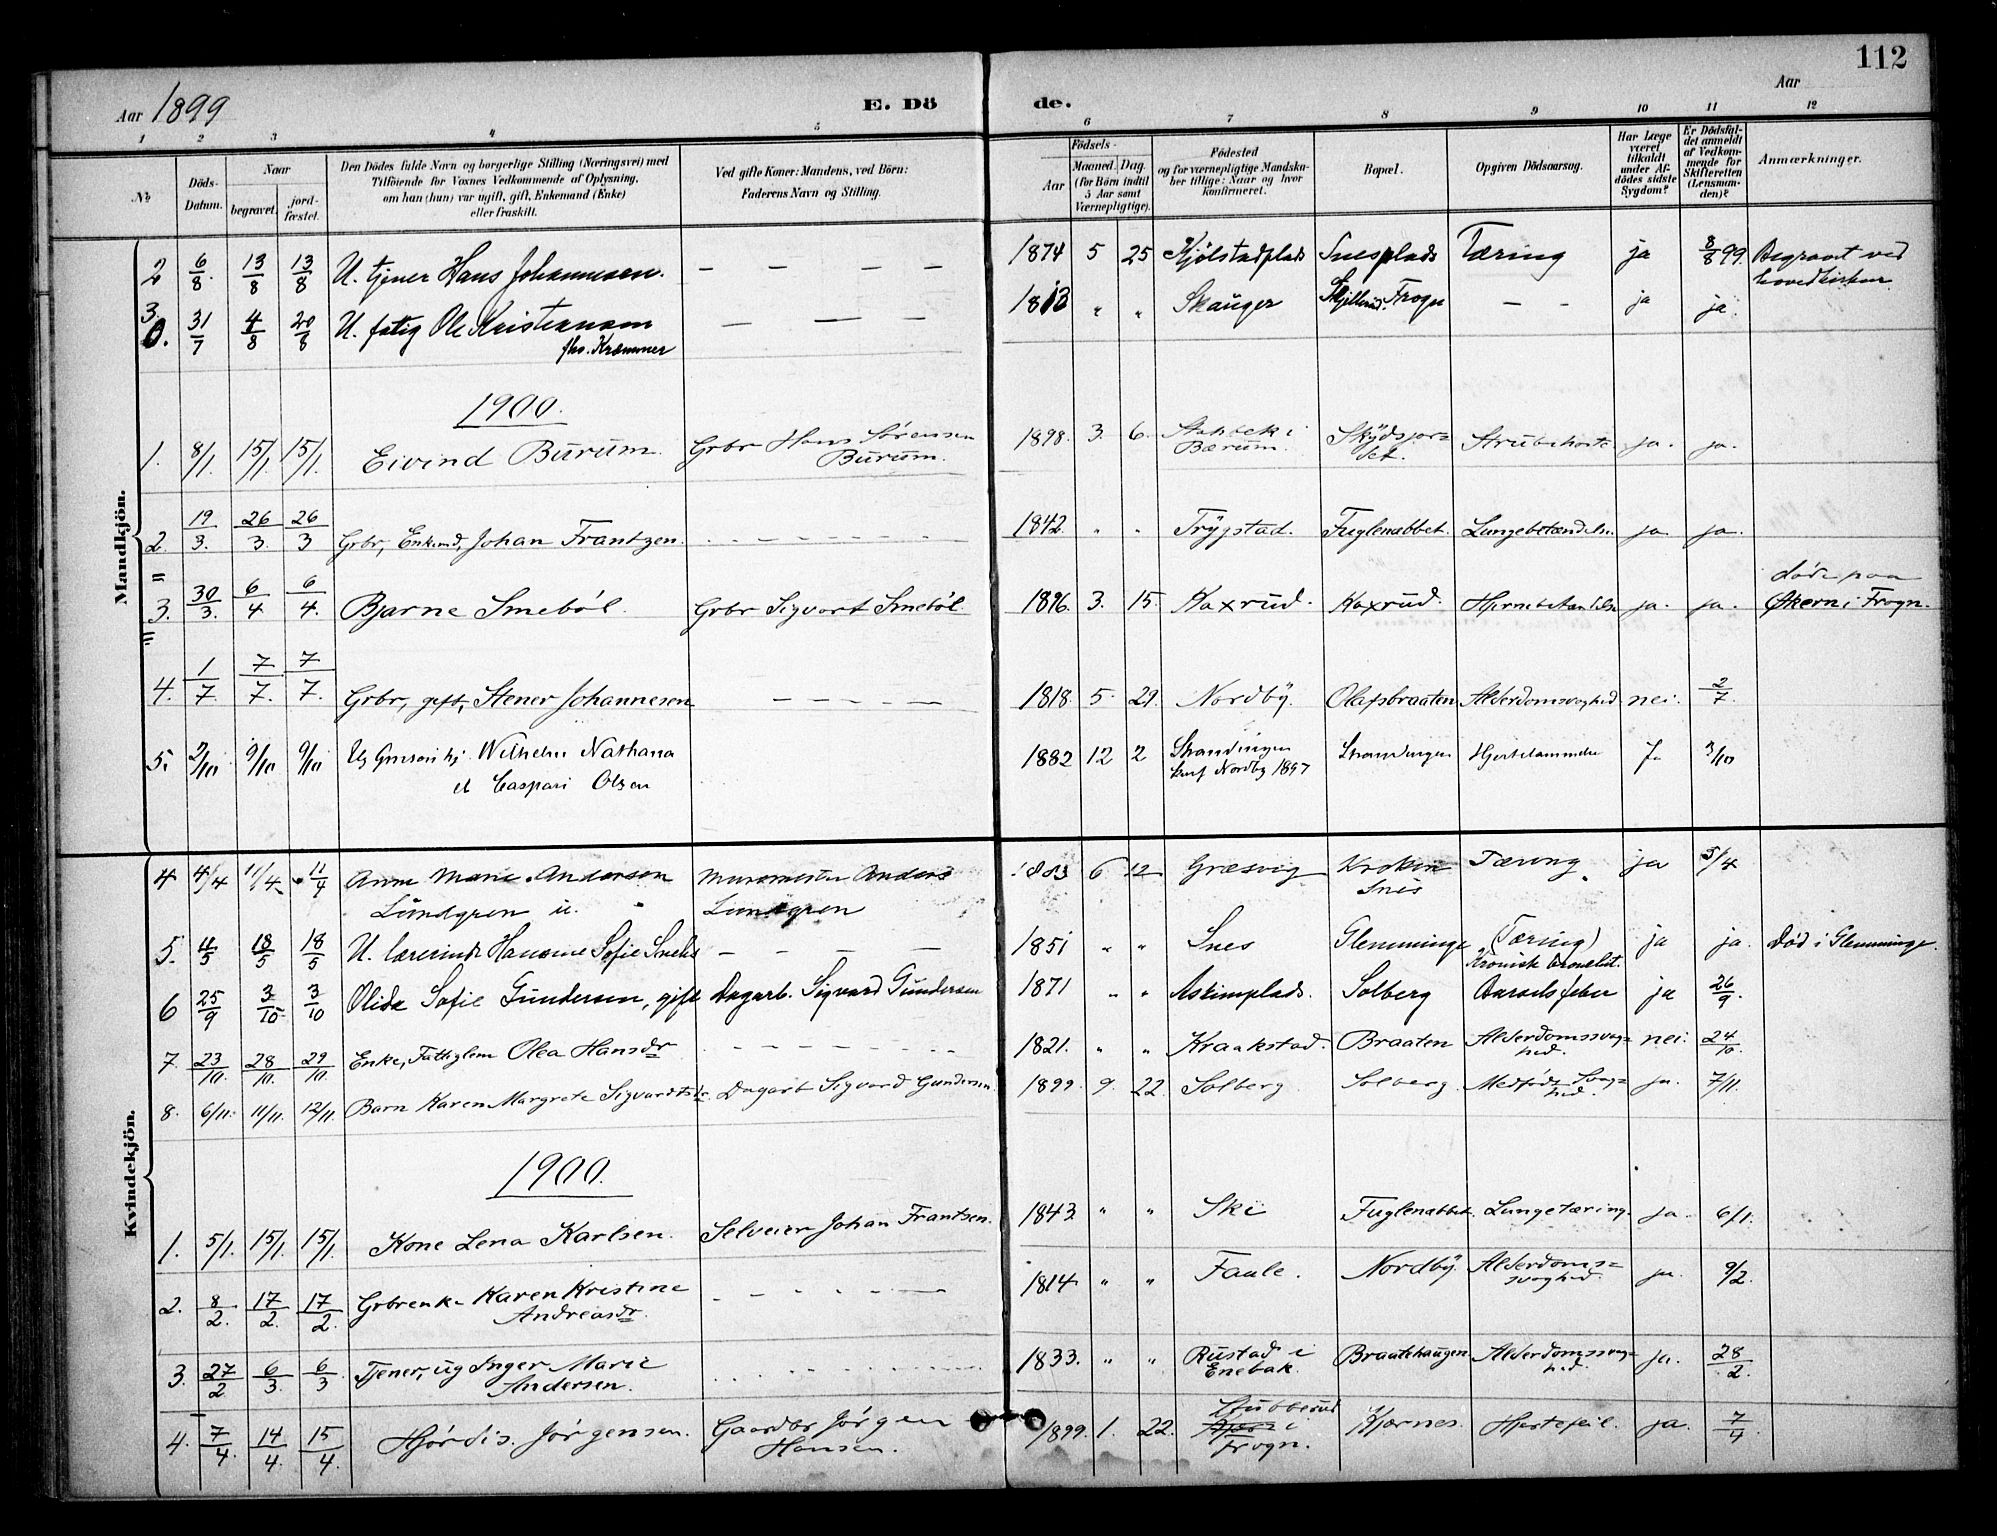 112
Aar 1899
E. Dö de.
Aar
1 2 3 4 5 6 7 8 9 10 11 12
No
Döds-Datum.
Naar
begravet.
jord-fæstet.
Den Dödes fulde Navn og borgerlige Stilling (Næringsvei) med
Tilföiende for Voxnes Vedkommende af Oplysning,
om han (hun) var ugift, gift, Enkemand (Enke)
eller fraskilt.
Ved gifte Koner: Mandens, ved Börn:
Faderens Navn og Stilling.
Födsels-
Aar
Maaned. Dag.
(for Börn indtil
5 Aar samt
Værnepligtige).
Födested
og for værnepligtige Mandska-
ber tillige: Naar og hvor
Konfirmeret.
Bopæl.
Opgiven Dödsaarsag.
Har Læge
været
tilkaldt
under Af-
dödes sidste
Sygdom?
Er Dödsfal-
det anmeldt
af Vedkom-
mende for
Skifteretten
(Lensman-
den)?
Anmærkninger.
Mandkjön.
2 6/8 13/8 13/8 U. tjener Hans Johannesen. — — — — 1874 5 25 Kjølstadplads Snesplads Tæring ja 8/8 99. Begravet ved
hovedkirken
3. 31/7 4/8 20/8 U. fatig Ole Kristiansen — — — 18 13 " " Skauger Frogn — — ja ja.
fhv. Kræmmer
1900.
1. 8/1. 15/1. 15/1. Eivind Burum. Grbr Hans Sørensen 1898. 3. 6. Stabek i Skydsjor= Strubehoste ja. ja.
Burum. Bærum. det.
2. 19/3. 26/3. 26/3 Grbr, Enkemd, Johan Frantzen. 1842. " " Trygstad. Fuglenæbbet. Lungebetændelse ja ja.
3. 30/3. 6/4 6/4. Bjarne Smebøl. Grbr Sigvart Smebøl. 1896. 3. 15. Kaxrud. Kaxrud. Hjernebetændelse ja. ja. døde paa
Økern i Frogn.
4. 1/7. 7/7. 7/7. Grbr, gift, Stener Johannesen 1818. 5. 29. Nordby. Olafsbraaten Alderdomssvaghed nei. 2/7.
5. 2/10 9/10 9/10 Wilhelm Nathana 1882 12 2 Strandengen Strandengen Ja 3/10
el Caspari Olsen konf Nordby 1897
Kvindekjön.
4 4/4 11/4 11/4 Anne Marie Andersen Murmester Anders 1883 6 12 Græsvig Kroken Tæring ja 5/4
Lundgren u. Lundgren Snes
5. 4/5 18/5 18/5 U. lærerinde Hansine Sofie Snehs — — — — 1851 " " Snes Glemminge (Tæring) ja ja. Død i Glemminge.
Kronisk bronchit.
6 25/9 3/10 3/10 Olide Sofie Gundersen, gift Dagarb. Sigvard Gundersen 1871 " " Askimplads. Solberg Barselsfeber ja 26/9.
7. 23/10. 28/10. 29/10. Enke, Fattiglem Olea Hansdr 1821. " " Kraakstad. Braaten Alderdomssvag= nei. 24/10.
hed.
8. 6/11. 11/11. 12/11. Barn Karen Margrete Sigvardtsdr. Dagarb Sigvard Gundersen 1899. 9. 22. Solberg. Solberg. Medfødt Svag= ja. 7/11.
hed.
1900.
1. 5/1. 15/1. 15/1. Kone Lena Karlsen. Selveier Johan Frantsen. 1843 " " Ski Fuglenæbbet. Lungetæring. ja. 6/1.
2. 8/2. 17/2. 17/2. Grbrenke Karen Kristine 1814 " " Faule. Nordby. Alderdoms= ja. 9/2.
Andreasdr. svaghed.
3. 27/2 6/3. 6/3 Tjener, ug Inger Marie 1833. " " Rustad i Braatehaugen Alderdomssvag= ja. 28/2.
Andersen. Enebak. hed.
4. 7/4. 14/4. 15/4. Hjørdis. Jørgensen. Gaardbr Jørgen 1899. 1. 22. Stubberud i Kjærnes. Hjertefeil. ja. 7/4
Hansen. Frogn.